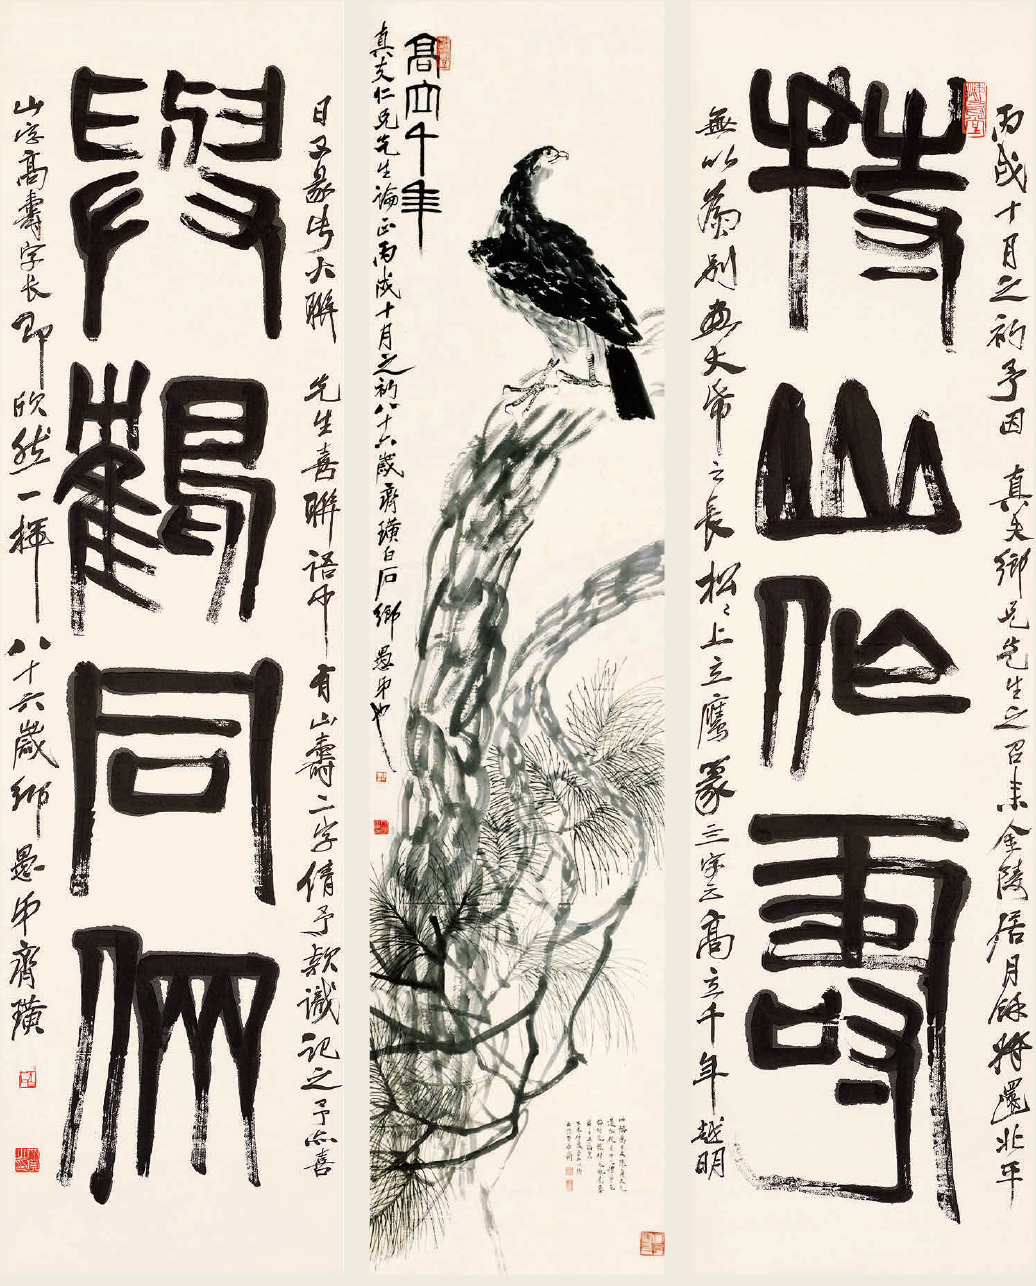 丙戌十月之初予因 真夫鄉兄先生之召來金陵居月餘將還北平
持山作壽
無以為別畫大幅之長松〻上立鷹篆三字云高立千年越明
高立千年
真夫仁兄先生論正丙戌十月之初八十六歲齊璜白石鄉愚弟也
日又篆此大聯 先生喜聯語中有山壽二字倩予款識記之予亦喜
與鶴同倆
山字高壽字長即欣然一揮八十六歲鄉愚弟齊璜